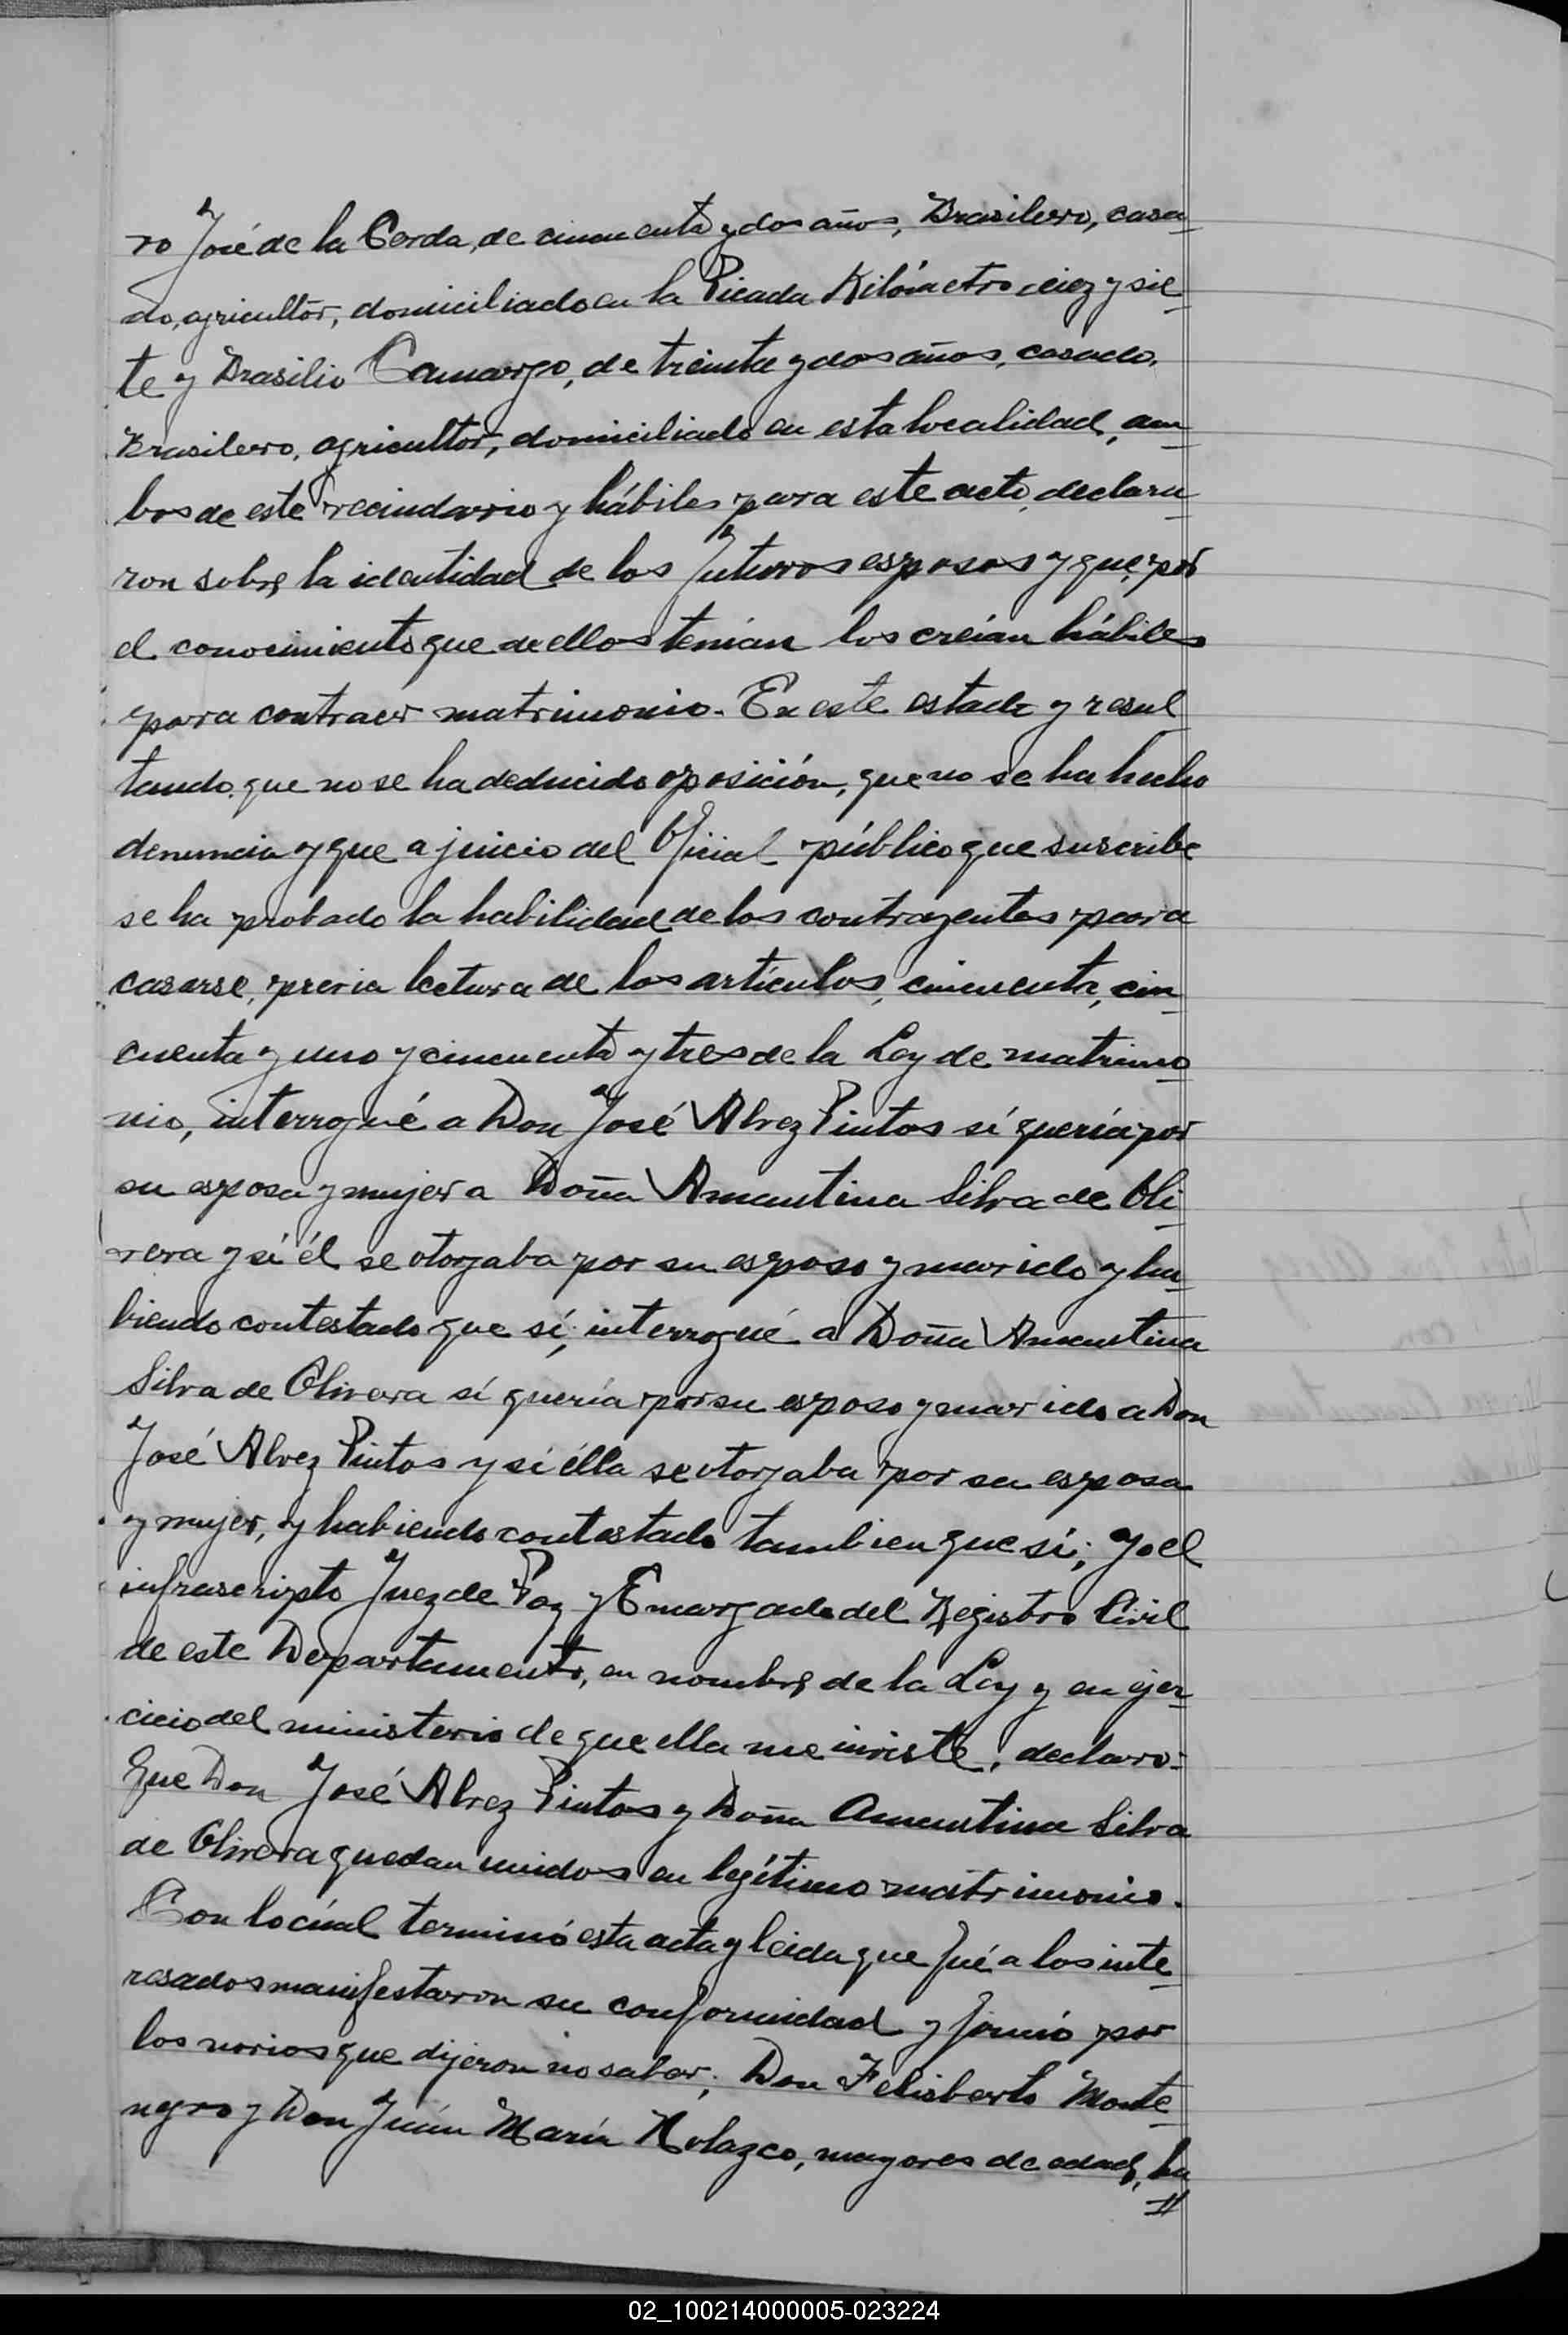 ro José de la Cerda, de cincuenta y dos años, Brasilero, casa-
do, agricultor, domiciliado en la Picada Kilómetro diez y sie-
te y Brasilio Camargo, de treinta y dos años, casado,
Brasilero, agricultor, domiciliado en esta localidad, am-
bos de este vecindario y hábiles para este acto, declara-
ron sobre la identidad de los futuros esposos y que, por
el conocimiento que de ellos tenían los creían hábiles
para contraer matrimonio. En este estado y resul
tando que no se ha deducido oposición, que no se ha hecho
denuncia y que a juicio del Oficial público que suscribe
se ha probado la habilidad de los contrayentes para
casarse, previa lectura de los artículos, cincuenta, cin-
cuenta y uno y cincuenta y tres de la Ley de matrimo-
nio, interrogué a Don José Alvez Pintos sí quería por
su esposa y mujer a Doña Amantina Silva de Oli-
vera y sí él se otorgaba por su esposo y marido y ha-
biendo contestado que sí; interrogué a Doña Amantina
Silva de Olivera sí quería por su esposo y marido a Don
José Alvez Pintos y sí élla se otorgaba por su esposa
y mujer, y habiendo contestado tambien que sí; Yo el
infrascripto Juez de Paz y Encargado del Registro Civil
de este Departamento, en nombre de la Ley y en ejer-
cicio del ministerio de que ella me inviste, declaro:
Que Don José Alvez Pintos y Doña Amantina Silva
de Olivera quedan unidos en legítimo matrimonio.
Con lo cúal terminó esta acta y leida que fué a los inte-
resados manifestaron su conformidad y firmó por
los novios que dijeron no saber; Don Felisberto Monte-
negro y Don Juan María Nolazco, mayores de edad, ha
//
02_100214000005-023224